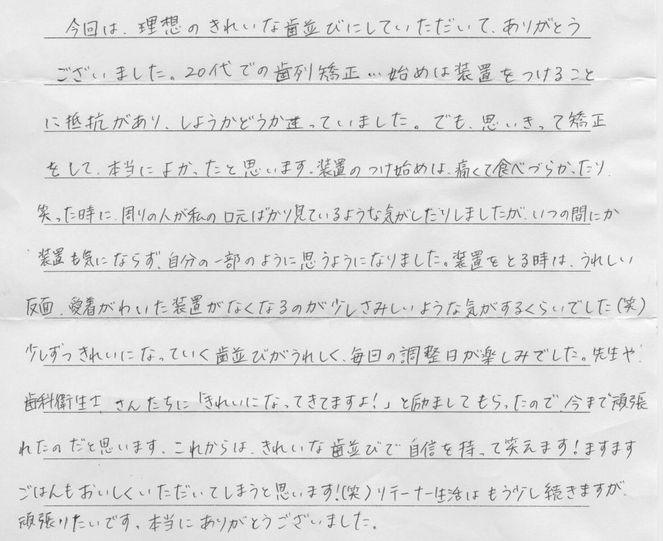 今回は、理想のきれいな歯並びにしていただいて、ありがとう
ございました。20代での歯列矯正…始めは装置をつけること
に抵抗があり、しようかどうか迷っていました。でも、思いきって矯正
をして、本当によかったと思います。装置のつけ始めは、痛くて食べづらかったり、
笑った時に、周りの人が私の口元ばかり見ているような気がしたりしましたが、いつの間にか
装置も気にならず、自分の一部のように思うようになりました。装置をとる時は、うれしい
反面、愛着がわいた装置がなくなるのが少しさみしいような気がするくらいでした(笑)
少しずつきれいになっていく歯並びがうれしく、毎回の調整日が楽しみでした。先生や
歯科衛生士さんたちに「きれいになってきてますよ!」と励ましてもらったので、今まで頑張
れたのだと思います。これからは、きれいな歯並びで自信を持って笑えます!ますます
ごはんもおいしくいただいてしまうと思います!(笑)リテーナー生活はもう少し続きますが、
頑張りたいです。本当にありがとうございました。